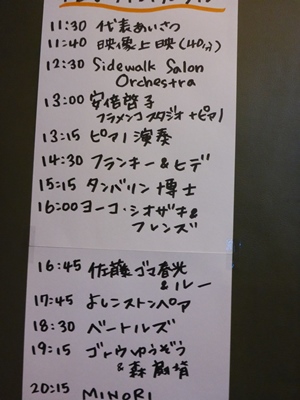 11:30 代表あいさつ
11:40 映像上映(40分)
12:30 Sidewalk Salon
Orchestra
13:00 安倍啓子
フラメンコスタジオ+ピアノ
13:15 ピアノ演奏
14:30 フランキー&ヒデ
15:15 タンバリン博士
16:00 ヨーコ・シオザキ&
フレンズ
16:45 佐藤ゴマ春光
&ルー
17:45 よしンストンペア
18:30 ベートルズ
19:15 ゴトウゆうぞう
& 森
20:15 MINORI